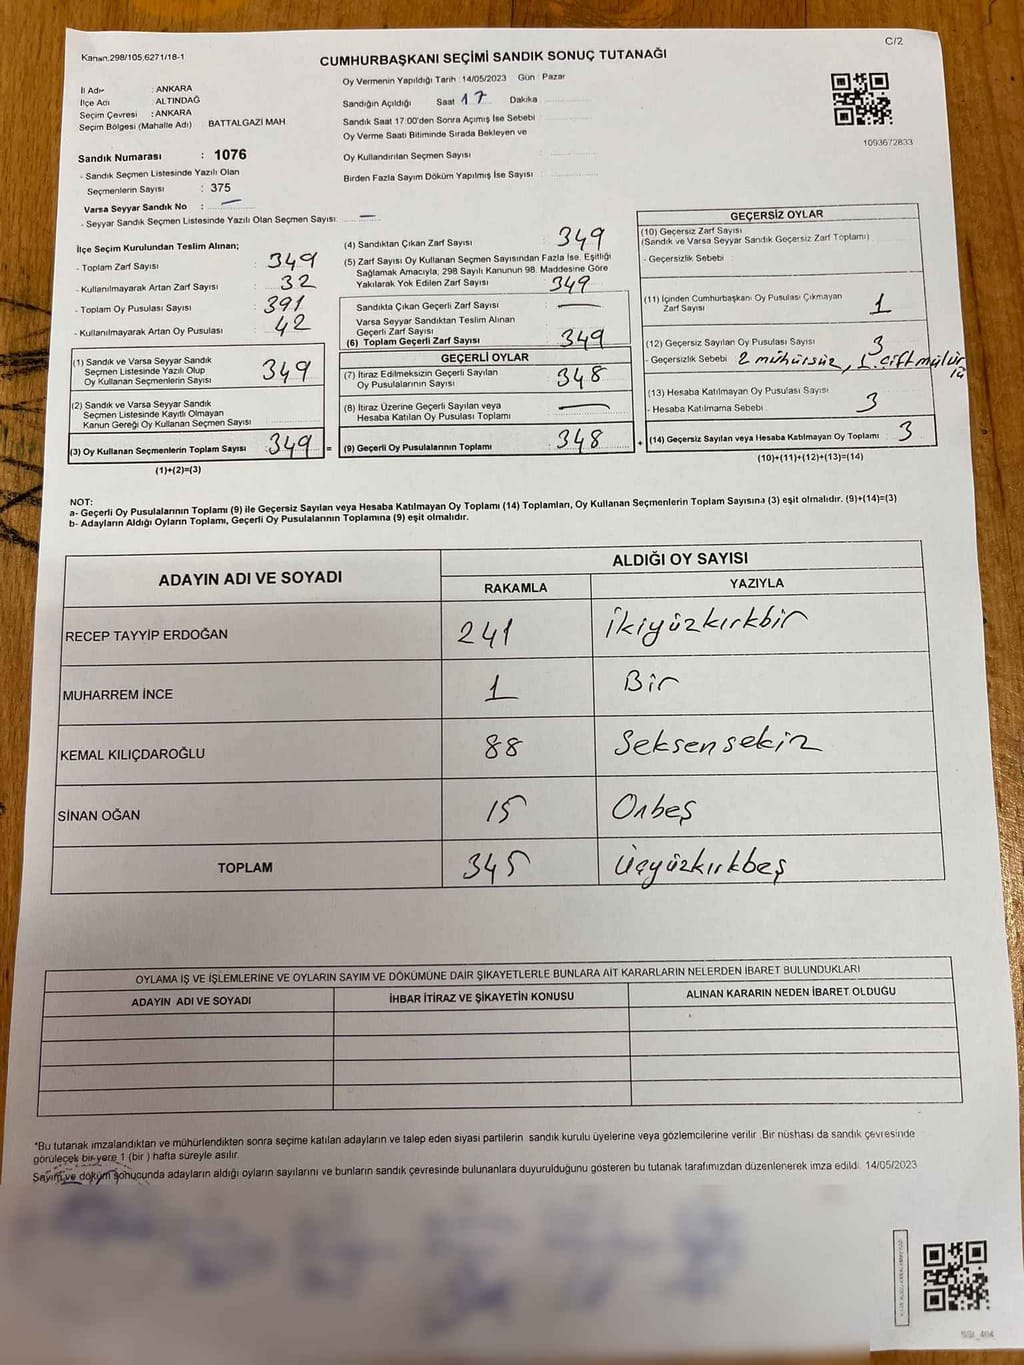 C/2
Kanun.298/105,6271/18-1
CUMHURBAŞKANI SEÇİMİ SANDIK SONUÇ TUTANAĞI
İl Adı : ANKARA
İlçe Adı : ALTINDAĞ
Seçim Çevresi : ANKARA
Seçim Bölgesi (Mahalle Adı) BATTALGAZİ MAH.
Sandık Numarası : 1076
- Sandık Seçmen Listesinde Yazılı Olan
Seçmenlerin Sayısı : 375
Varsa Seyyar Sandık No : —
- Seyyar Sandık Seçmen Listesinde Yazılı Olan Seçmen Sayısı: —
Oy Vermenin Yapıldığı Tarih : 14/05/2023 Gün : Pazar
Sandığın Açıldığı Saat 17 Dakika
Sandık Saat 17:00'den Sonra Açımış İse Sebebi :
Oy Verme Saati Bitiminde Sırada Bekleyen ve
Oy Kullandırılan Seçmen Sayısı :
Birden Fazla Sayım Döküm Yapılmış İse Sayısı :
1093672833
İlçe Seçim Kurulundan Teslim Alınan;
- Toplam Zarf Sayısı : 349
- Kullanılmayarak Artan Zarf Sayısı : 32
- Toplam Oy Pusulası Sayısı : 391
- Kullanılmayarak Artan Oy Pusulası : 42
(1) Sandık ve Varsa Seyyar Sandık
Seçmen Listesinde Yazılı Olup
Oy Kullanan Seçmenlerin Sayısı : 349
(2) Sandık ve Varsa Seyyar Sandık
Seçmen Listesinde Kayıtlı Olmayan
Kanun Gereği Oy Kullanan Seçmen Sayısı :
(3) Oy Kullanan Seçmenlerin Toplam Sayısı : 349 =
(1)+(2)=(3)
(4) Sandıktan Çıkan Zarf Sayısı : 349
(5) Zarf Sayısı Oy Kullanan Seçmen Sayısından Fazla İse, Eşitliği
Sağlamak Amacıyla, 298 Sayılı Kanunun 98. Maddesine Göre
Yakılarak Yok Edilen Zarf Sayısı : 349
Sandıkta Çıkan Geçerli Zarf Sayısı : —
Varsa Seyyar Sandıktan Teslim Alınan
Geçerli Zarf Sayısı
(6) Toplam Geçerli Zarf Sayısı : 349
GEÇERLİ OYLAR
(7) İtiraz Edilmeksizin Geçerli Sayılan
Oy Pusulalarının Sayısı : 348
(8) İtiraz Üzerine Geçerli Sayılan veya
Hesaba Katılan Oy Pusulası Toplamı : —
(9) Geçerli Oy Pusulalarının Toplamı : 348 +
GEÇERSİZ OYLAR
(10) Geçersiz Zarf Sayısı
(Sandık ve Varsa Seyyar Sandık Geçersiz Zarf Toplamı)
- Geçersizlik Sebebi :
(11) İçinden Cumhurbaşkanı Oy Pusulası Çıkmayan
Zarf Sayısı 1
(12) Geçersiz Sayılan Oy Pusulası Sayısı 3
- Geçersizlik Sebebi 2 mühürsüz, 1 çift
(13) Hesaba Katılmayan Oy Pusulası Sayısı
- Hesaba Katılmama Sebebi : 3
(14) Geçersiz Sayılan veya Hesaba Katılmayan Oy Toplamı : 3
(10)+(11)+(12)+(13)=(14)
NOT:
a- Geçerli Oy Pusulalarının Toplamı (9) ile Geçersiz Sayılan veya Hesaba Katılmayan Oy Toplamı (14) Toplamları, Oy Kullanan Seçmenlerin Toplam Sayısına (3) eşit olmalıdır. (9)+(14)=(3)
b- Adayların Aldığı Oyların Toplamı, Geçerli Oy Pusulalarının Toplamına (9) eşit olmalıdır.
ADAYIN ADI VE SOYADI
ALDIĞI OY SAYISI
RAKAMLA YAZIYLA
RECEP TAYYİP ERDOĞAN 241 İkiyüzkırkbir
MUHARREM İNCE 1 Bir
KEMAL KILIÇDAROĞLU 88 Seksensekiz
SİNAN OĞAN 15 Onbeş
TOPLAM 345 Üçyüzkırkbeş
OYLAMA İŞ VE İŞLEMLERİNE VE OYLARIN SAYIM VE DÖKÜMÜNE DAİR ŞİKAYETLERLE BUNLARA AİT KARARLARIN NELERDEN İBARET BULUNDUKLARI
ADAYIN ADI VE SOYADI İHBAR İTİRAZ VE ŞİKAYETİN KONUSU ALINAN KARARIN NEDEN İBARET OLDUĞU
*Bu tutanak imzalandıktan ve mühürlendikten sonra seçime katılan adayların ve talep eden siyasi partilerin sandık kurulu üyelerine veya gözlemcilerine verilir .Bir nüshası da sandık çevresinde
görülecek bir yere 1 (bir ) hafta süreyle asılır.
Sayım ve döküm sonucunda adayların aldığı oyların sayılarını ve bunların sandık çevresinde bulunanlara duyurulduğunu gösteren bu tutanak tarafımızdan düzenlenerek imza edildi. 14/05/2023